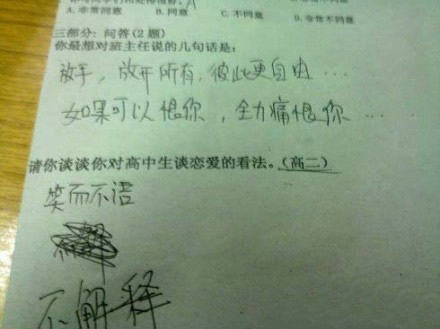 A. 非常同意 B. 同意 C. 不同意 D. 非常不同意
三部分: 问答(2题)
你最想对班主任说的几句话是:
放手，放开所有，彼此更自由…
如果可以恨你，全力痛恨你…
请你谈谈你对高中生谈恋爱的看法。(高二)
笑而不语
不解释